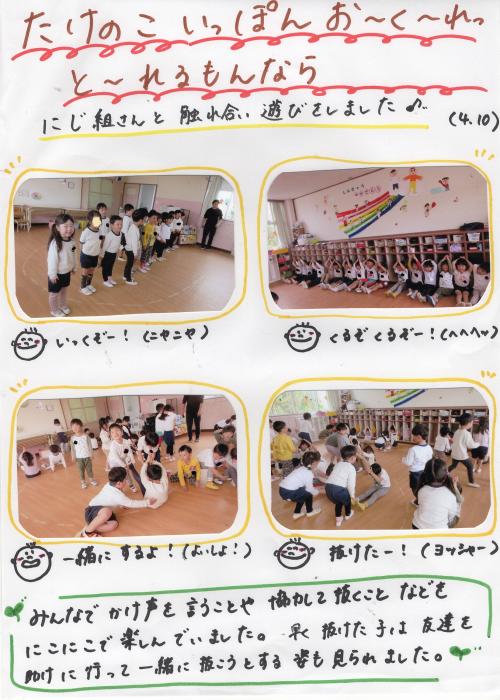 たけのこ いっぽん お〜く〜れっ
と〜れるもんなら
にじ組さんと 触れ合い遊びをしました♪
(4.10)
いっくぞー!(ニヤニヤ)
くるぞくるぞー!(へへへッ)
一緒にするよ!(よいしょ!)
抜けたー!(ヨッシャー)
みんなでかけ声を言うことや 協力して抜くことなどを
にこにこで楽しんでいました。早く抜けた子は友達を
助けに行って一緒に抜こうとする姿も見られました。